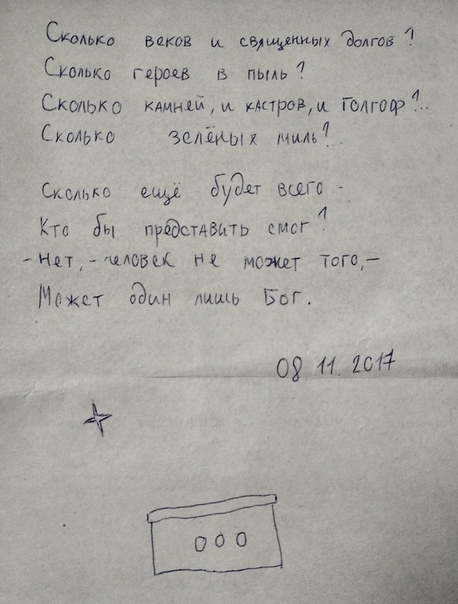 Сколько веков и священных долгов?
Сколько героев в пыль?
Сколько камней, и кастров, и Голгоф?..
Сколько зелёных миль?..
Сколько ещё будет всего -
Кто бы представить смог?
- Нет, - человек не может того, -
Может один лишь Бог.
08 11. 2017